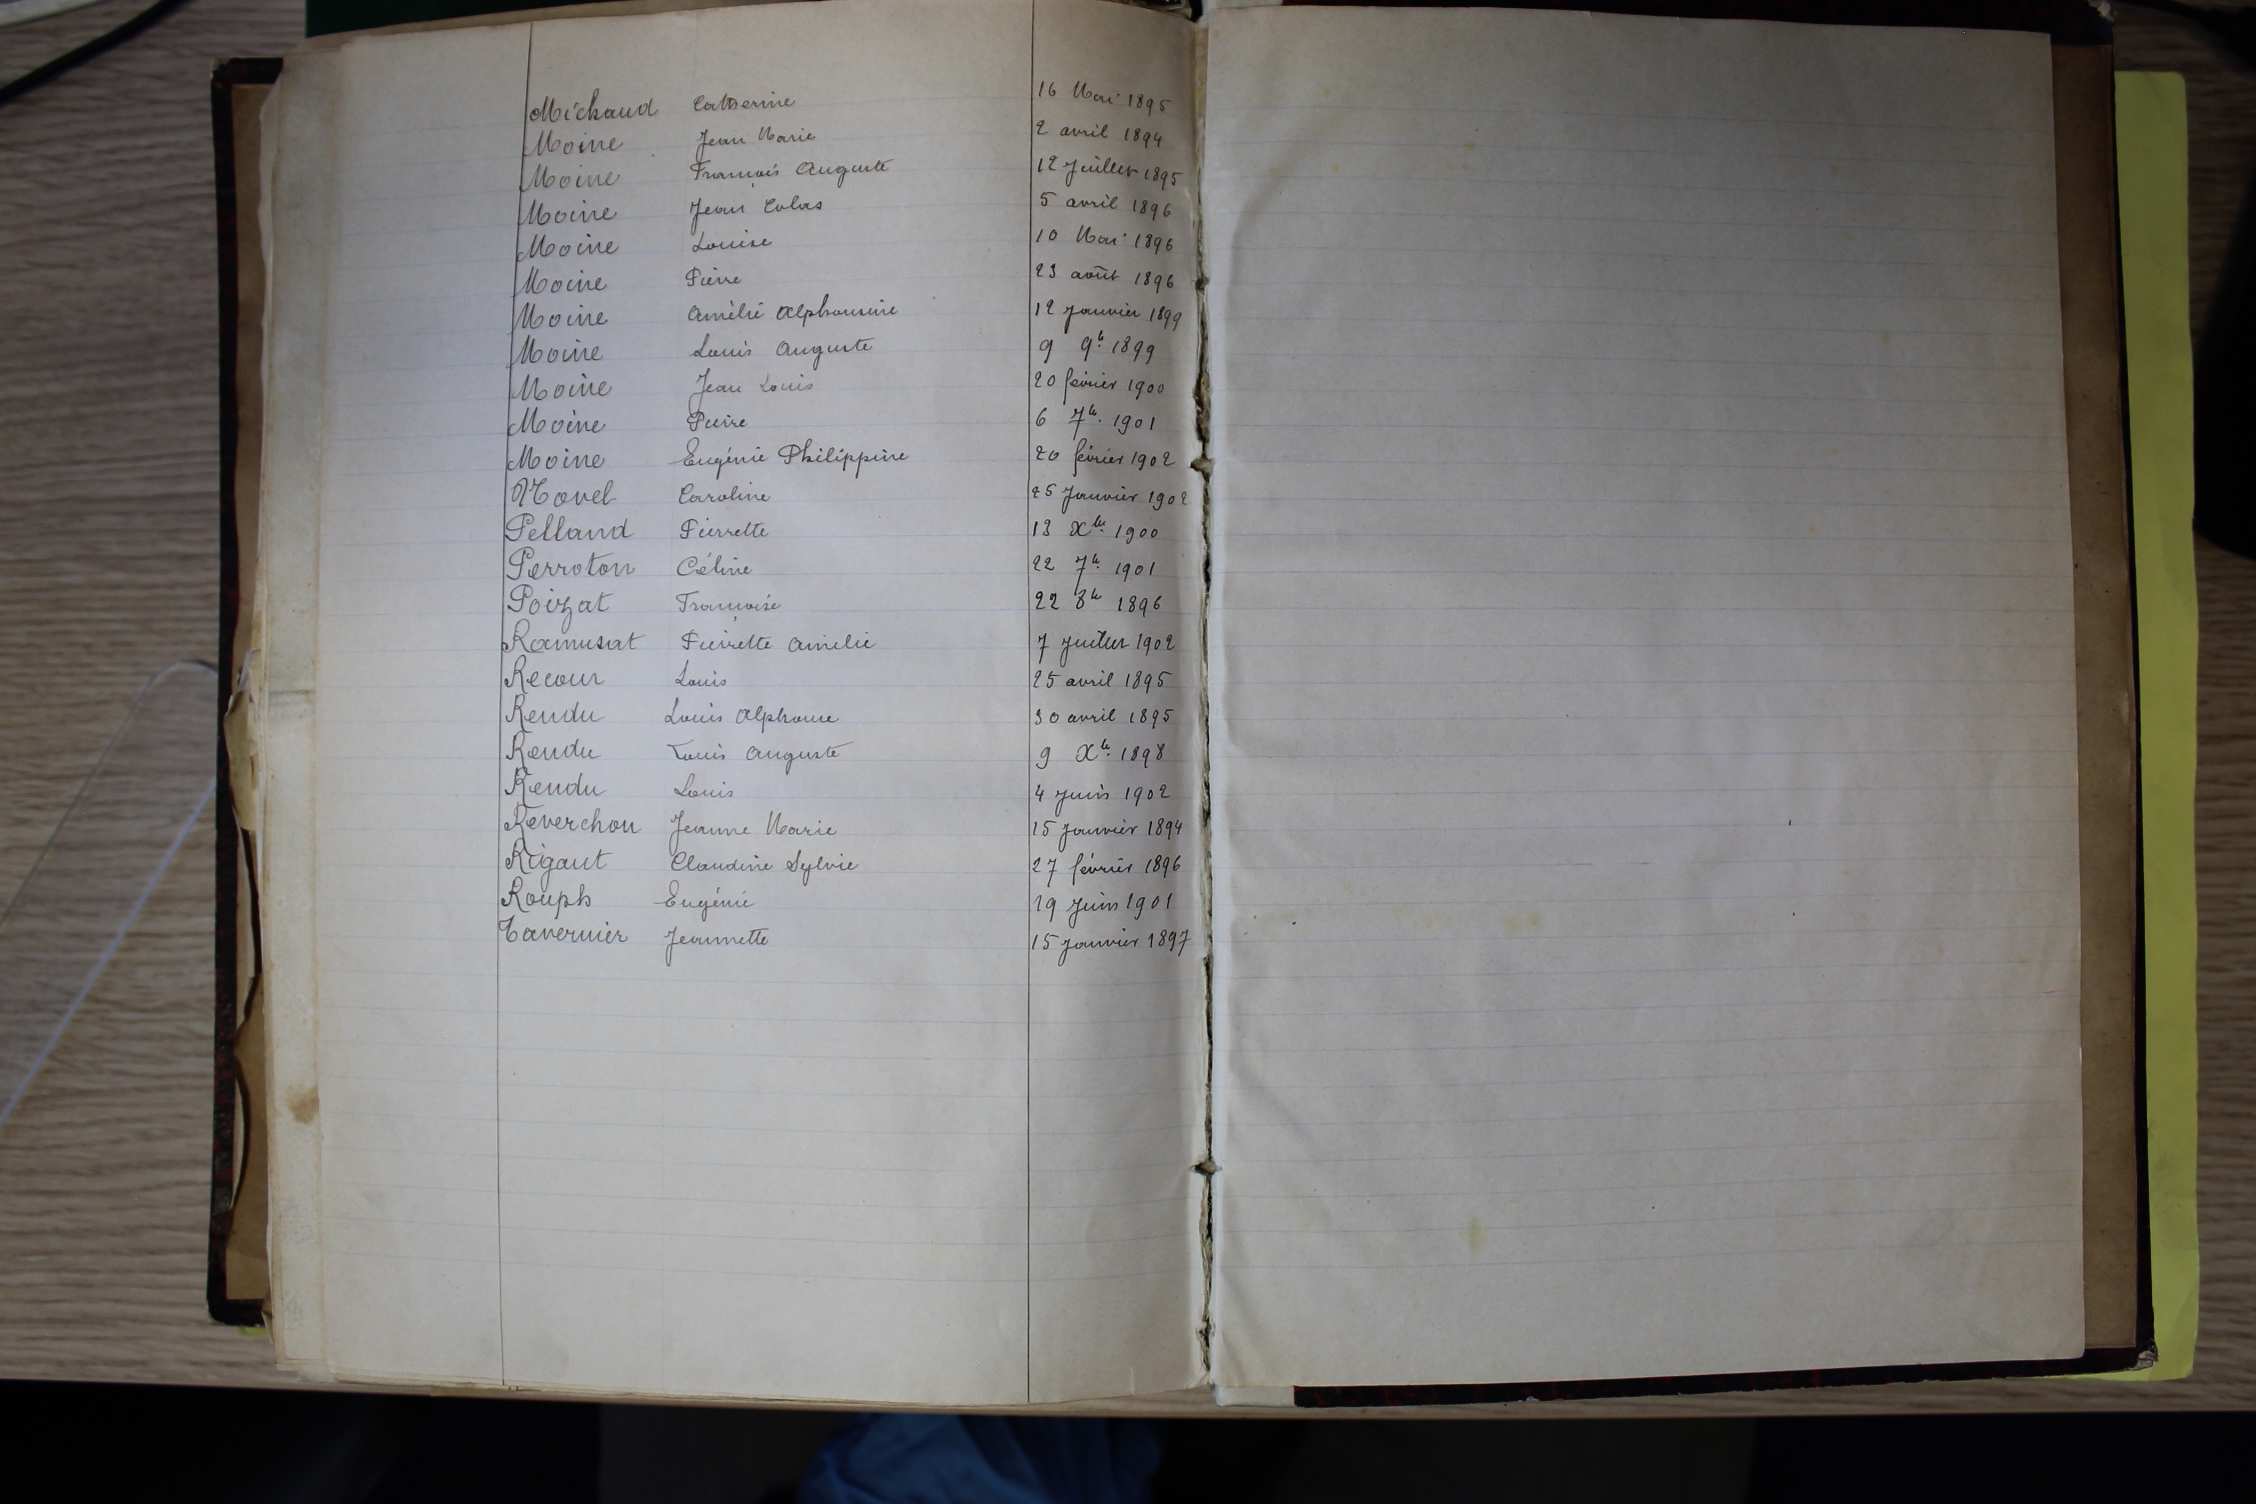 Michaud Catherine 16 Mai 1895
Moine Jean Marie 2 avril 1894
Moine François Auguste 12 Juillet 1895
Moine Jean Colas 5 avril 1896
Moine Louise 10 Mai 1896
Moine Pierre 23 août 1896
Moine Amélie Alphonsine 12 Janvier 1899
Moine Louis Auguste 9 9b. 1899
Moine Jean Louis 20 février 1900
Moine Pierre 6 7b. 1901
Moine Eugénie Philippine 20 février 1902
Novel Caroline 25 Janvier 1902
Pelland Pierrette 13 Xbr. 1900
Perroton Céline 22 7b. 1901
Poizat Françoise 22 8b 1896
Ramusat Pierrette Amélie 7 Juillet 1902
Recour Louis 25 avril 1895
Rendu Louis Alphonse 30 avril 1895
Rendu Louis Auguste 9 Xb. 1898
Rendu Louis 4 Juin 1902
Reverchon Jeanne Marie 15 Janvier 1894
Rigaut Claudine Sylvie 27 février 1896
Rouph Eugénie 29 Juin 1901
Tavernier Jeannette 15 Janvier 1897